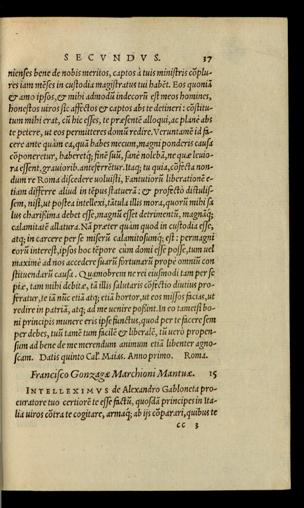 SECVNDVS. 37
nienses bene de nobis meritos, captos à tuis ministris cõplu-
res iam mẽses in custodia magistratus tui habẽt. Eos quoniã
& amo ipsos, & mihi admodũ indecorũ est meos homines,
honestos uiros sic affectos & captos abs te detineri: cõstitu-
tum mihi erat, cũ hic esses, te præsentẽ alloqui, ac planè abs
te petere, ut eos permitteres domũ redire. Veruntamẽ id fa-
cere ante quàm ea, quã habes mecum, magni ponderis causa
cõponeretur, haberetq; finẽ suũ, sanè nolebã, ne quæ leuio-
ra essent, grauiorib. anteferrẽtur. Itaq; tu quia, cõfecta non-
dum re Roma discedere uoluisti, Fantutiorũ liberationẽ e-
tiam differre aliud in tẽpus statuerã: & profectò distulis-
sem, nisi, ut postea intellexi, tãtula illis mora, quorũ mihi sa
lus charissima debet esse, magnũ esset detrimentũ, magnãq;
calamitatẽ allatura. Nã præter quàm quod in custodia esse,
atq; in carcere per se miserũ calamitosumq; est: permagni
eorũ interest, ipsos hoc tẽpore cùm domi esse posse, tum uel
maximè ad nos accedere suarũ fortunarũ propè omniũ con
stituendarũ causa. Quamobrem ne rei eiusmodi tam per se
piæ, tam mihi debitæ, tã illis salutaris cõfectio diutius pro-
feratur, te iã nũc etiã atq; etiã hortor, ut eos missos facias, ut
redire in patriã, atq; ad me uenire possint. In eo tametsi bo-
ni principis munere eris ipse functus, quod per te facere sem
per debes, tuũ tamẽ tum facilẽ & liberalẽ, tũ uerò propen-
sum ad bene de me merendum animum etiã libenter agno-
scam. Datis quinto Cal. Maias. Anno primo. Roma.
Francisco Gonzagæ Marchioni Mantuæ. 15
INTELLEXIMVS de Alexandro Gabloneta pro-
curatore tuo certiorẽ te esse factũ, quosdã principes in Ita-
lia uiros cõtra te cogitare, armaq; ab ijs cõparari, quibus te
CC 3